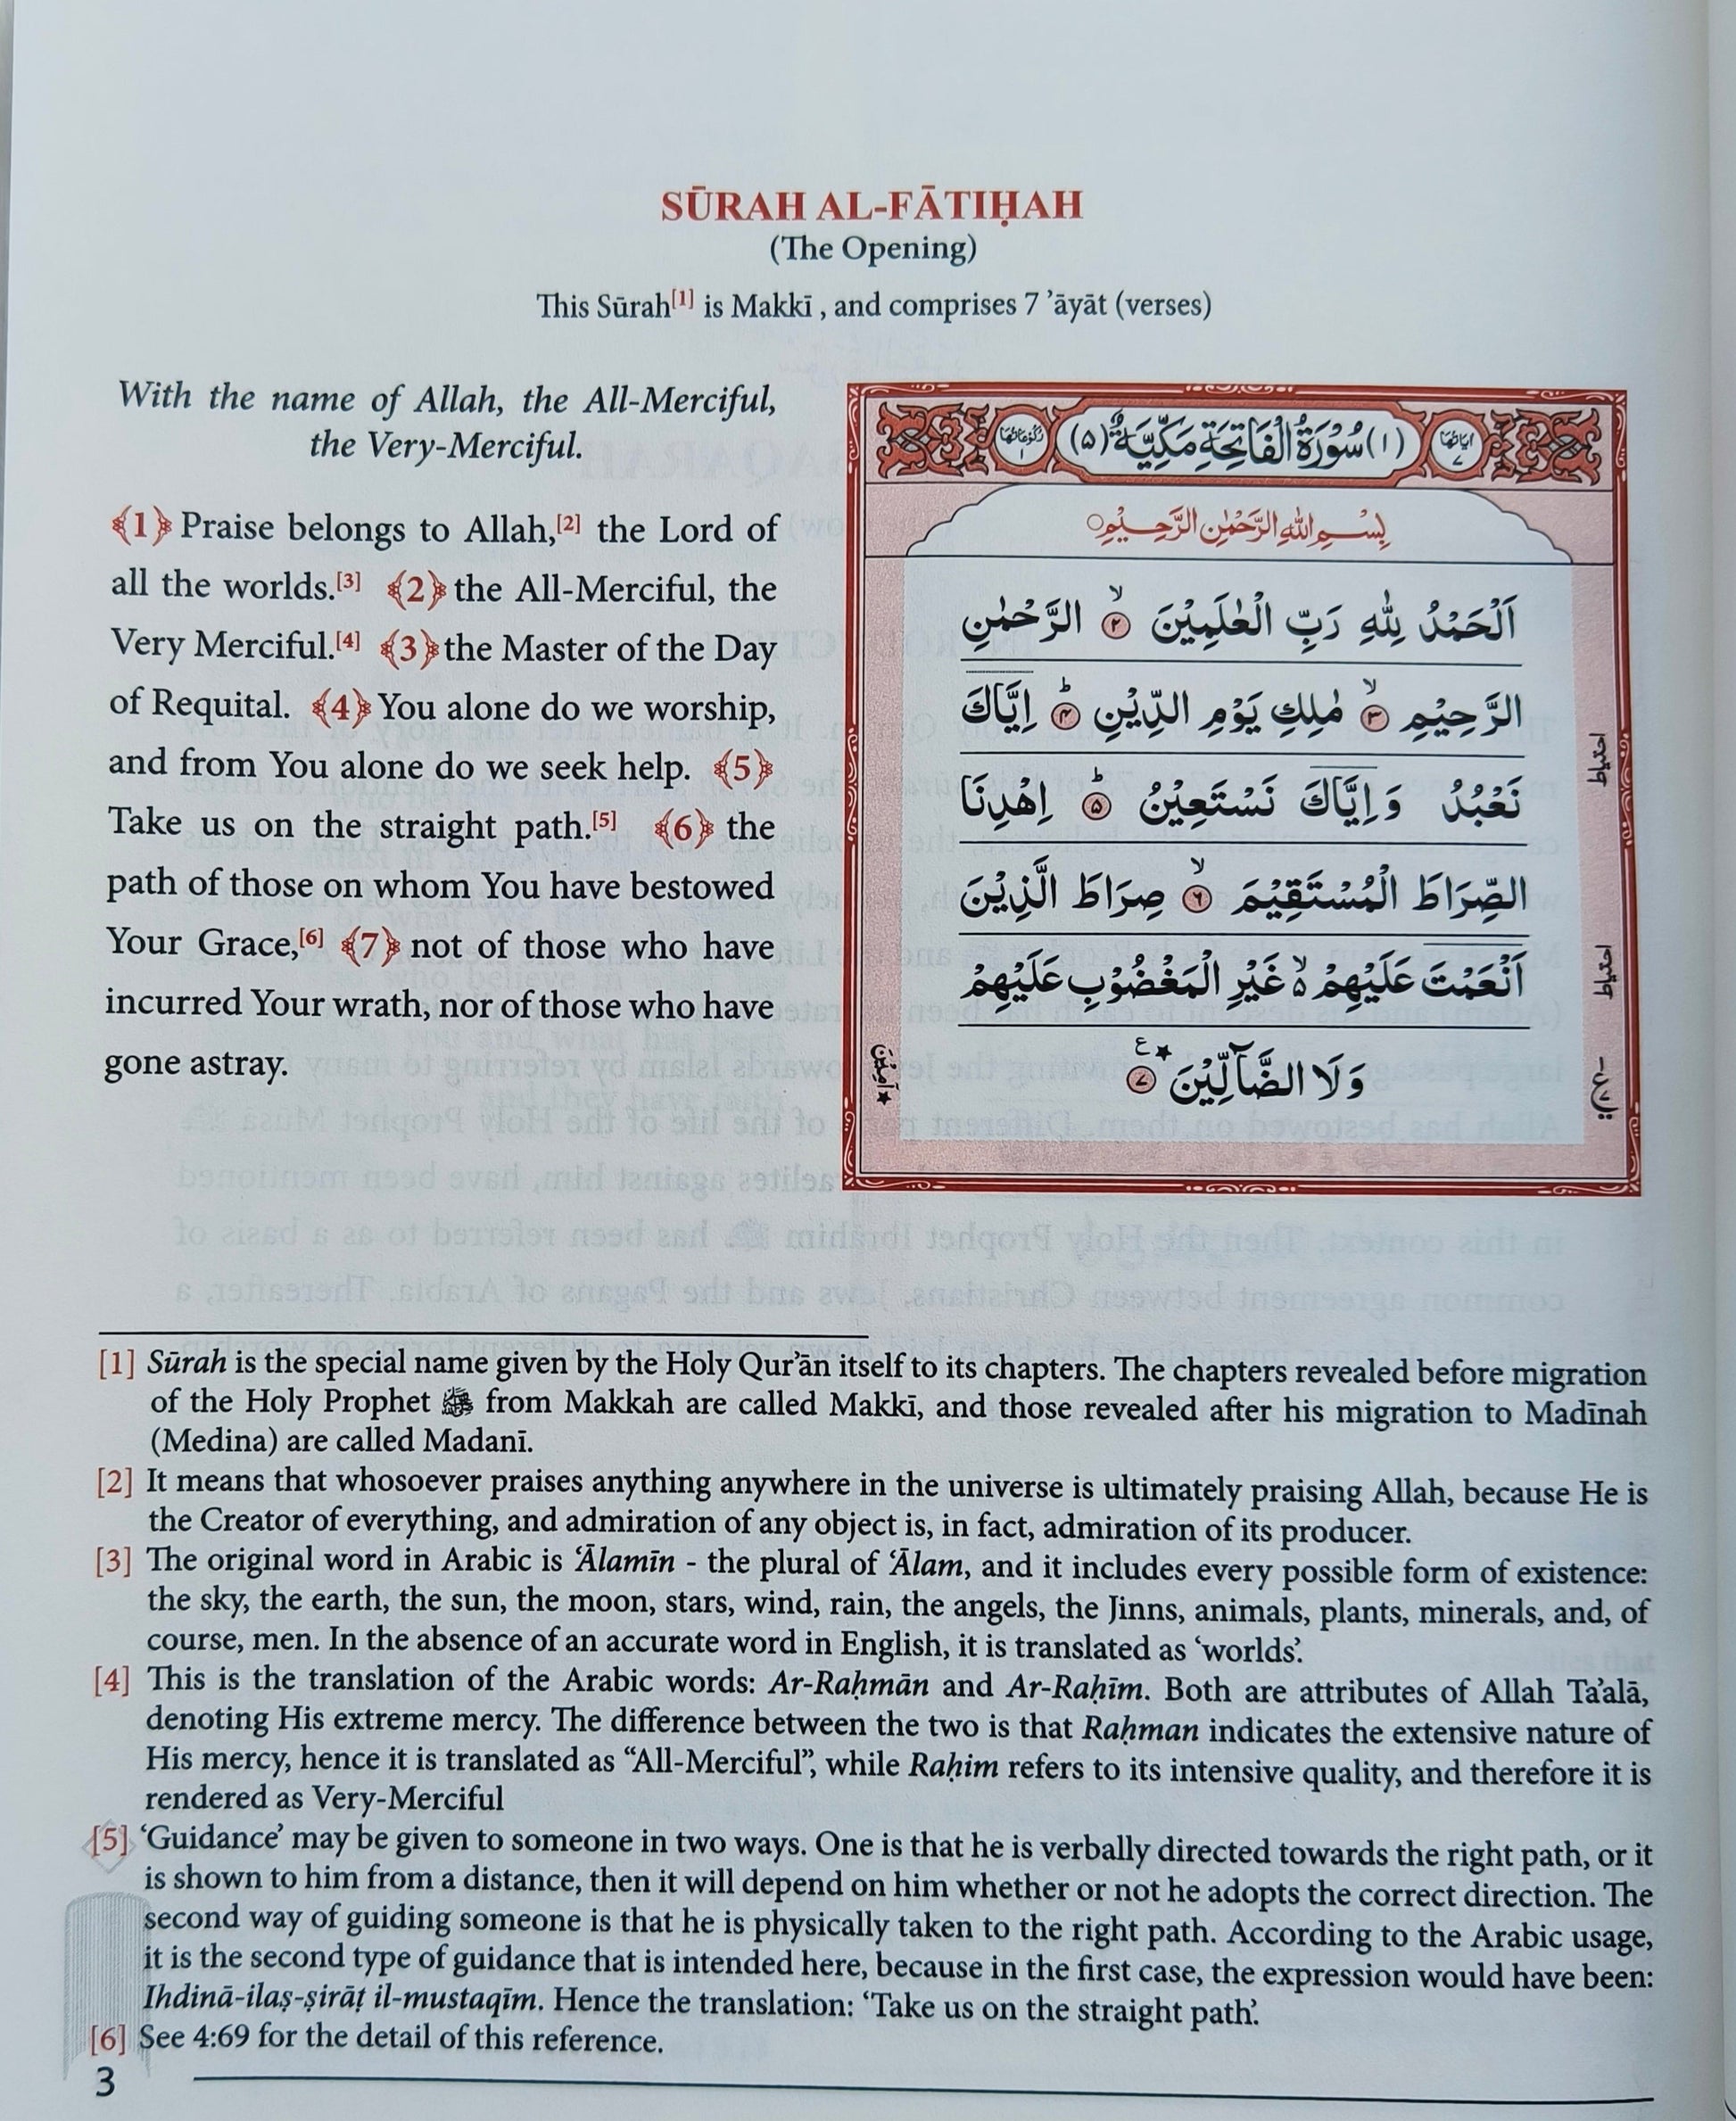 SŪRAH AL-FĀTIḤAH
(The Opening)
This Sūrah[1] is Makkī , and comprises 7 ’āyāt (verses)
With the name of Allah, the All-Merciful,
the Very-Merciful.
﴾1﴿ Praise belongs to Allah,[2] the Lord of
all the worlds.[3] ﴾2﴿ the All-Merciful, the
Very Merciful.[4] ﴾3﴿ the Master of the Day
of Requital. ﴾4﴿ You alone do we worship,
and from You alone do we seek help. ﴾5﴿
Take us on the straight path.[5] ﴾6﴿ the
path of those on whom You have bestowed
Your Grace,[6] ﴾7﴿ not of those who have
incurred Your wrath, nor of those who have
gone astray.
اٰیَاتُهَا ۷ (۱) سُوْرَةُ الْفَاتِحَةِ مَكِّيَّةٌ (۵) رُكُوْعَاتُهَا ۱
بِسْمِ اللهِ الرَّحْمٰنِ الرَّحِيْمِ ○
اَلْحَمْدُ لِلّٰهِ رَبِّ الْعٰلَمِيْنَ ۙ ۲ الرَّحْمٰنِ
الرَّحِيْمِ ۙ ۳ مٰلِكِ يَوْمِ الدِّيْنِ ؕ ۴ اِيَّاكَ
نَعْبُدُ وَاِيَّاكَ نَسْتَعِيْنُ ؕ ۵ اِهْدِنَا
الصِّرَاطَ الْمُسْتَقِيْمَ ۙ ۶ صِرَاطَ الَّذِيْنَ
اَنْعَمْتَ عَلَيْهِمْ ۙ۬ غَيْرِ الْمَغْضُوْبِ عَلَيْهِمْ
وَلَا الضَّآلِّيْنَ ٭ ع ۷
احتیاط
احتیاط
٭ اٰمِيْن
[1] Sūrah is the special name given by the Holy Qur’ān itself to its chapters. The chapters revealed before migration
of the Holy Prophet ﷺ from Makkah are called Makkī, and those revealed after his migration to Madīnah
(Medina) are called Madanī.
[2] It means that whosoever praises anything anywhere in the universe is ultimately praising Allah, because He is
the Creator of everything, and admiration of any object is, in fact, admiration of its producer.
[3] The original word in Arabic is ‘Ālamīn - the plural of ‘Ālam, and it includes every possible form of existence:
the sky, the earth, the sun, the moon, stars, wind, rain, the angels, the Jinns, animals, plants, minerals, and, of
course, men. In the absence of an accurate word in English, it is translated as ‘worlds’.
[4] This is the translation of the Arabic words: Ar-Raḥmān and Ar-Raḥīm. Both are attributes of Allah Ta’alā,
denoting His extreme mercy. The difference between the two is that Raḥman indicates the extensive nature of
His mercy, hence it is translated as “All-Merciful”, while Raḥim refers to its intensive quality, and therefore it is
rendered as Very-Merciful
[5] ‘Guidance’ may be given to someone in two ways. One is that he is verbally directed towards the right path, or it
is shown to him from a distance, then it will depend on him whether or not he adopts the correct direction. The
second way of guiding someone is that he is physically taken to the right path. According to the Arabic usage,
it is the second type of guidance that is intended here, because in the first case, the expression would have been:
Ihdinā-ilaṣ-ṣirāṭ il-mustaqīm. Hence the translation: ‘Take us on the straight path’.
[6] See 4:69 for the detail of this reference.
3